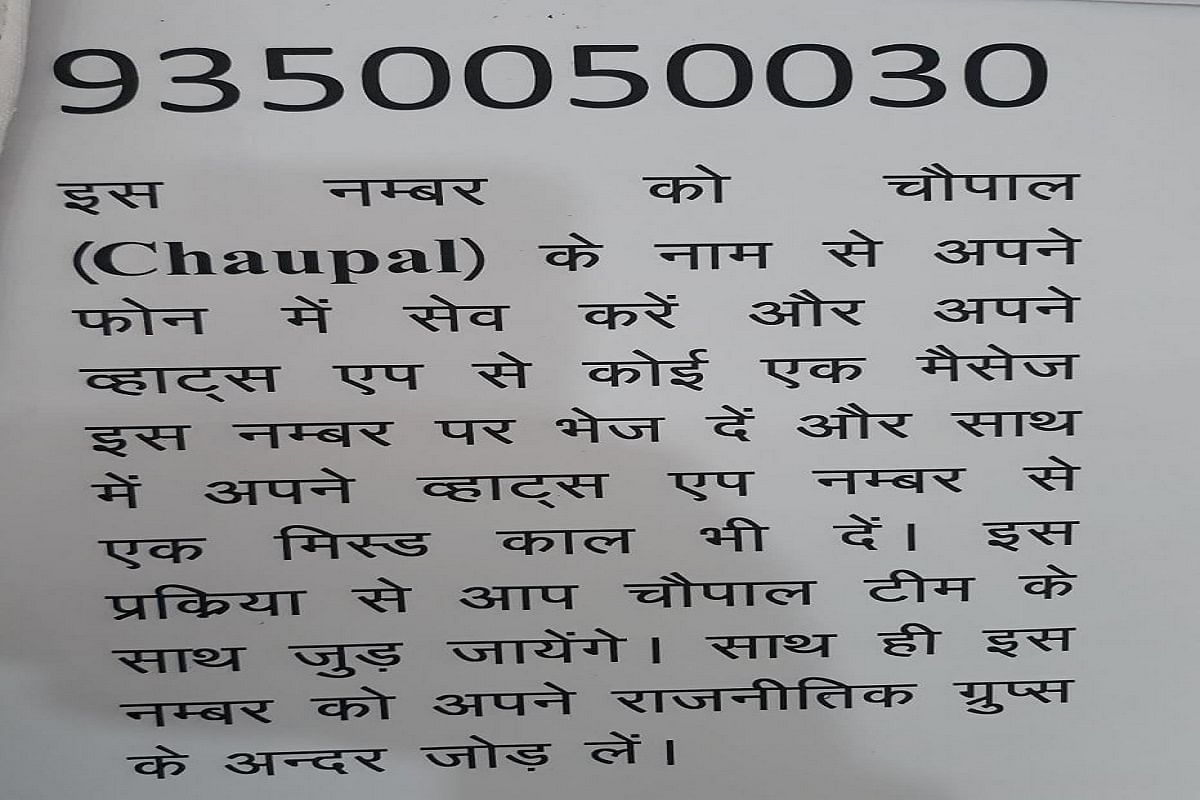 9350050030
इस नम्बर को चौपाल
(Chaupal) के नाम से अपने
फोन में सेव करें और अपने
व्हाट्स एप से कोई एक मैसेज
इस नम्बर पर भेज दें और साथ
में अपने व्हाट्स एप नम्बर से
एक मिस्ड काल भी दें। इस
प्रक्रिया से आप चौपाल टीम के
साथ जुड़ जायेंगे। साथ ही इस
नम्बर को अपने राजनीतिक ग्रुप्स
के अन्दर जोड़ लें।